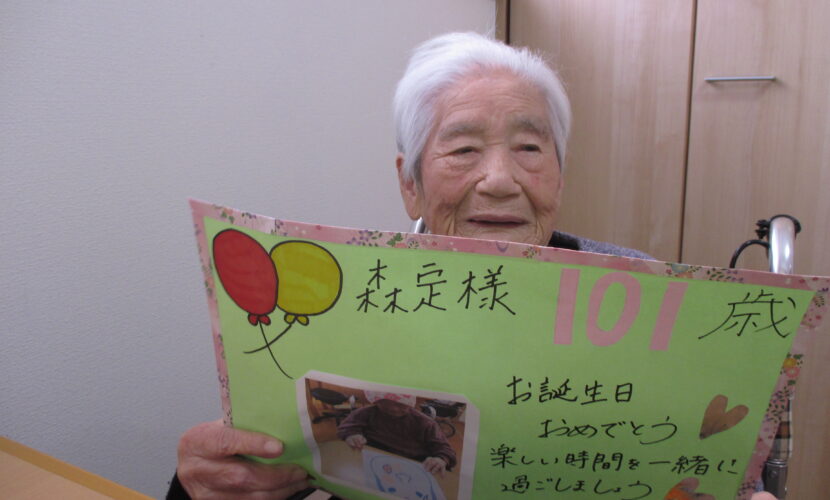 森定様 101歳
お誕生日
おめでとう
楽しい時間を一緒に
過ごしましょう